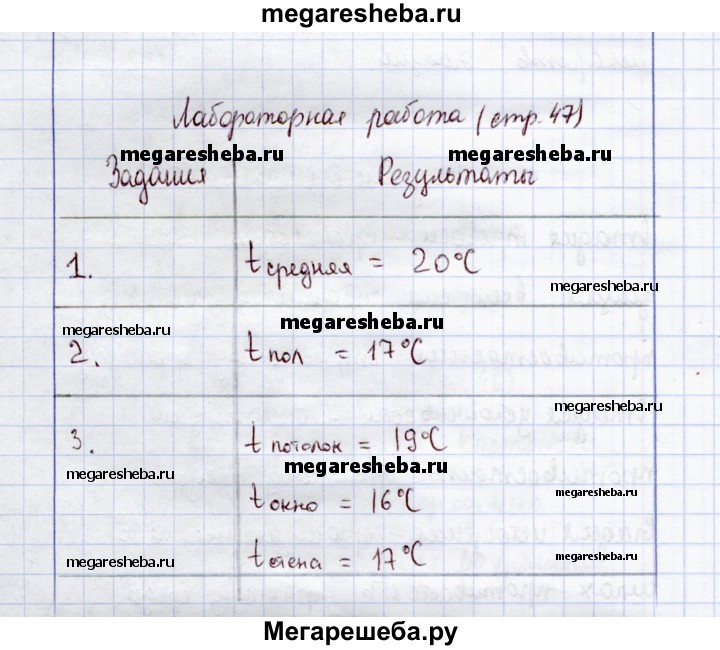 megaresheba.ru
Лабораторная работа (стр. 47)
megaresheba.ru megaresheba.ru
Задания Результаты
1. t средняя = 20°C
megaresheba.ru
megaresheba.ru megaresheba.ru
2. t пол = 17°C
megaresheba.ru
3. t потолок = 19°C
megaresheba.ru megaresheba.ru
t окно = 16°C megaresheba.ru
megaresheba.ru t стена = 17°C megaresheba.ru
megaresheba.ru
Мегарешеба.ру